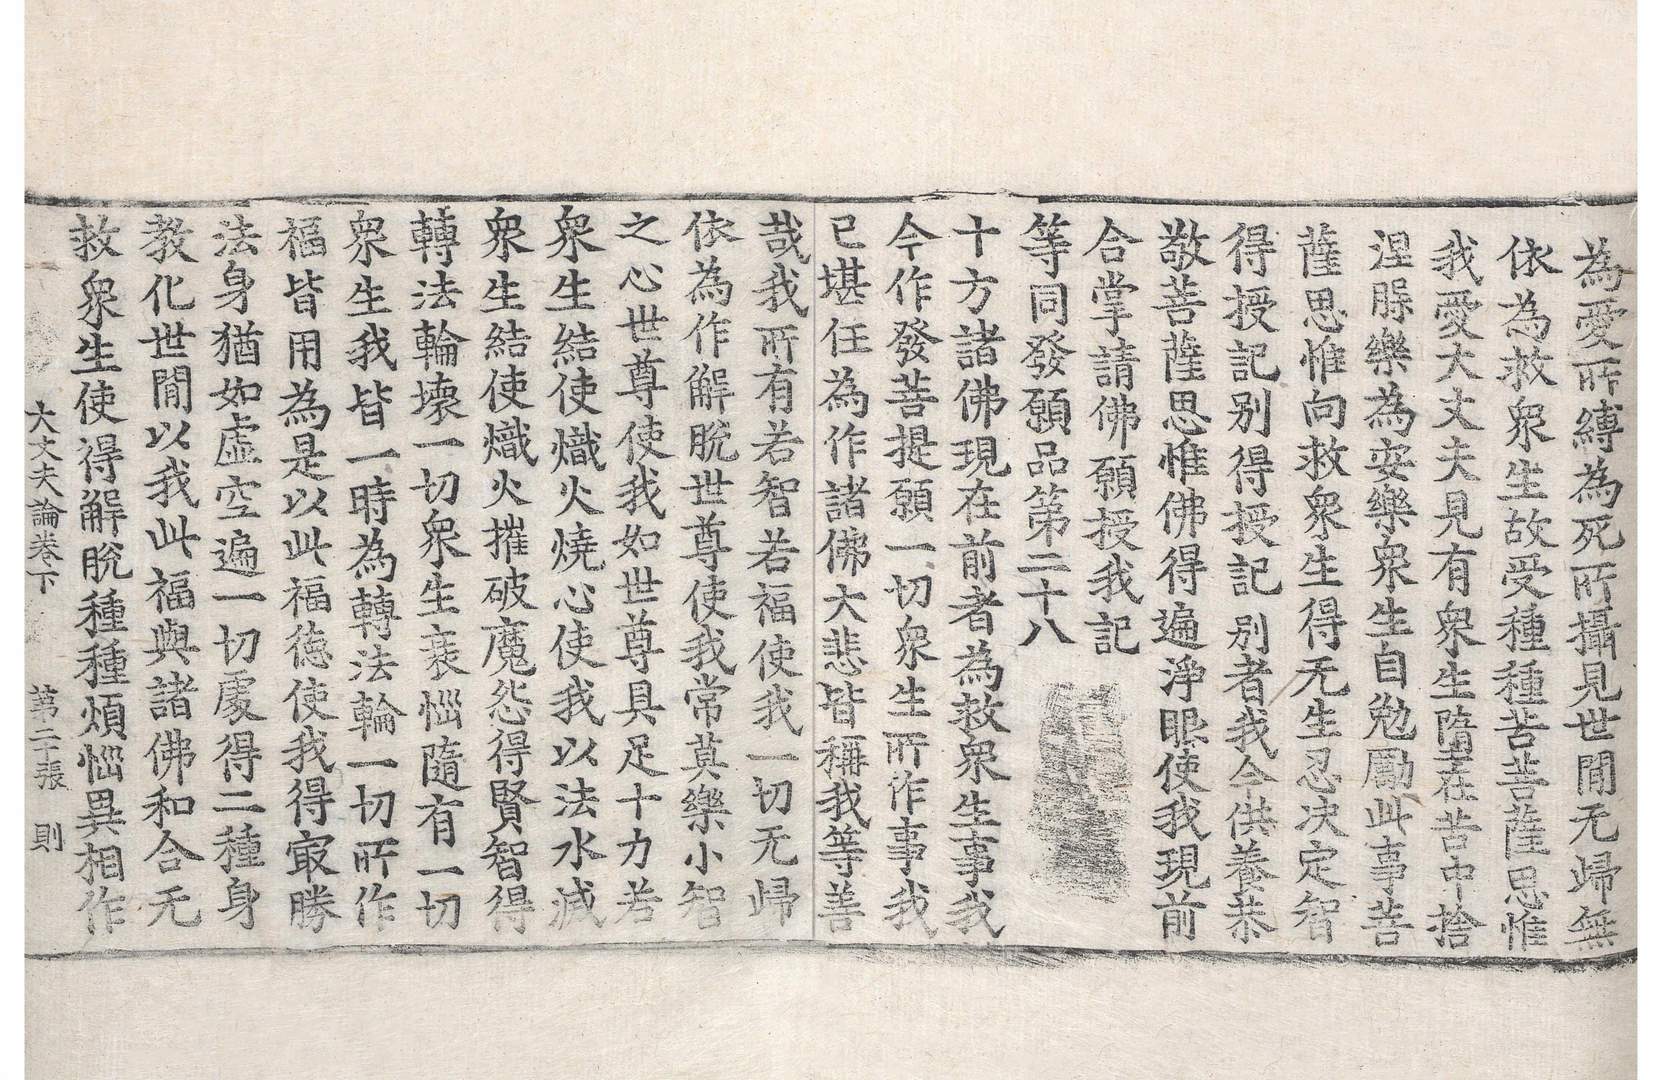 為愛所縛為死所攝見世間无歸無
依為救衆生故受種種苦菩薩思惟
我愛大丈夫見有衆生墮在苦中捨
涅槃樂為安樂衆生自勉勵此事菩
薩思惟向救衆生得无生忍决定智
得授記别得授記别者我今供養恭
敬菩薩思惟佛得遍淨眼使我現前
合掌請佛願授我記
等同發願品第二十八
十方諸佛現在前者為救衆生事我
今作發菩提願一切衆生所作事我
已堪任為作諸佛大悲皆稱我等善
哉我所有若智若福使我一切无歸
依為作解脫世尊使我常莫樂小智
之心世尊使我如世尊具足十力若
衆生結使熾火燒心使我以法水滅
衆生結使熾火摧破魔怨得賢智得
轉法輪壞一切衆生衰惱隨有一切
衆生我皆一時為轉法輪一切所作
福皆用為是以此福德使我得㝡勝
法身猶如虛空遍一切處得二種身
教化世間以我此福與諸佛和合无
救衆生使得解脫種種煩惱異相作
大丈夫論卷下 第二十張 則